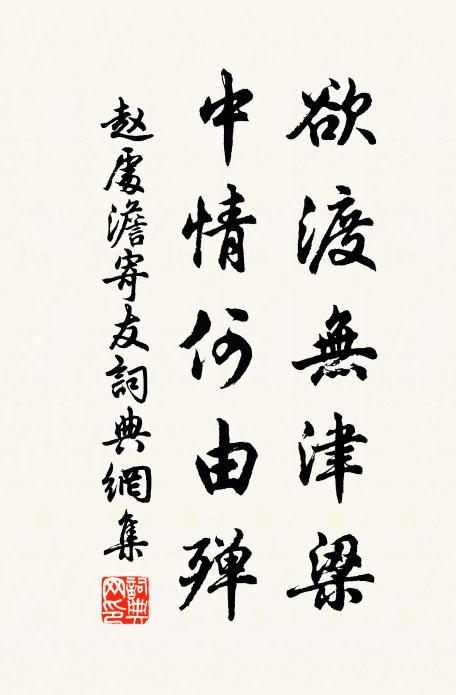 欲渡無津梁
中情何由殫
赵處澹寄友詞典網集
詞典网印